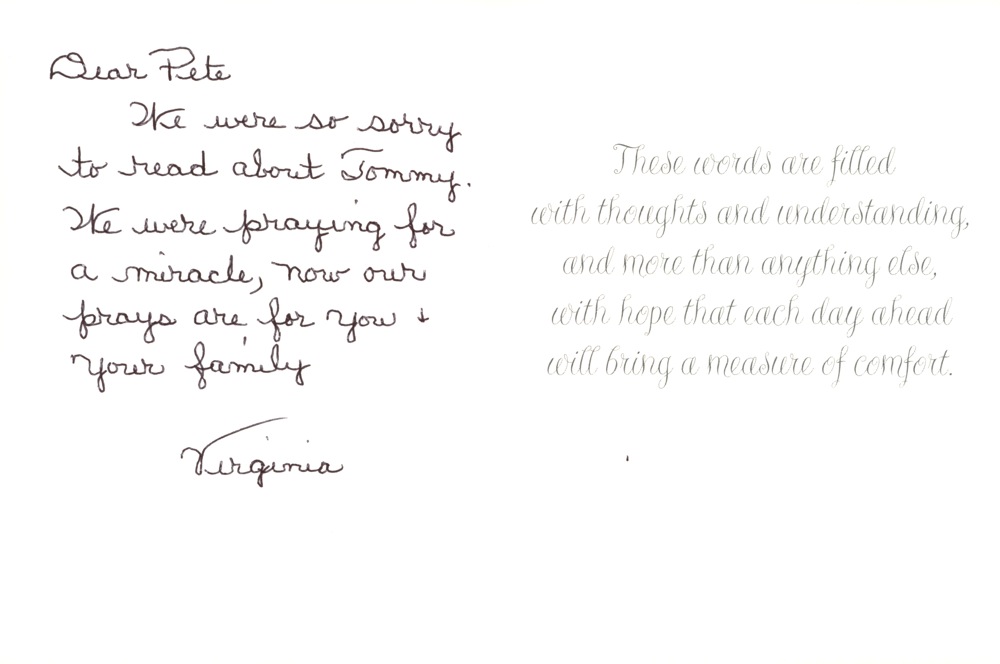 Dear Pete
We were so sorry
to read about Tommy.
We were praying for
a miracle, now our
prays are for you +
your family
Virginia
These words are filled
with thoughts and understanding,
and more than anything else,
with hope that each day ahead
will bring a measure of comfort.